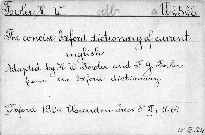 Fowler H. W.
The concise Oxford dictionary of current
english
Adapted by H. W. Fowler and F. G. Fowler
from the Oxford dictionary
Oxford 1924 Clarendon Press 8°